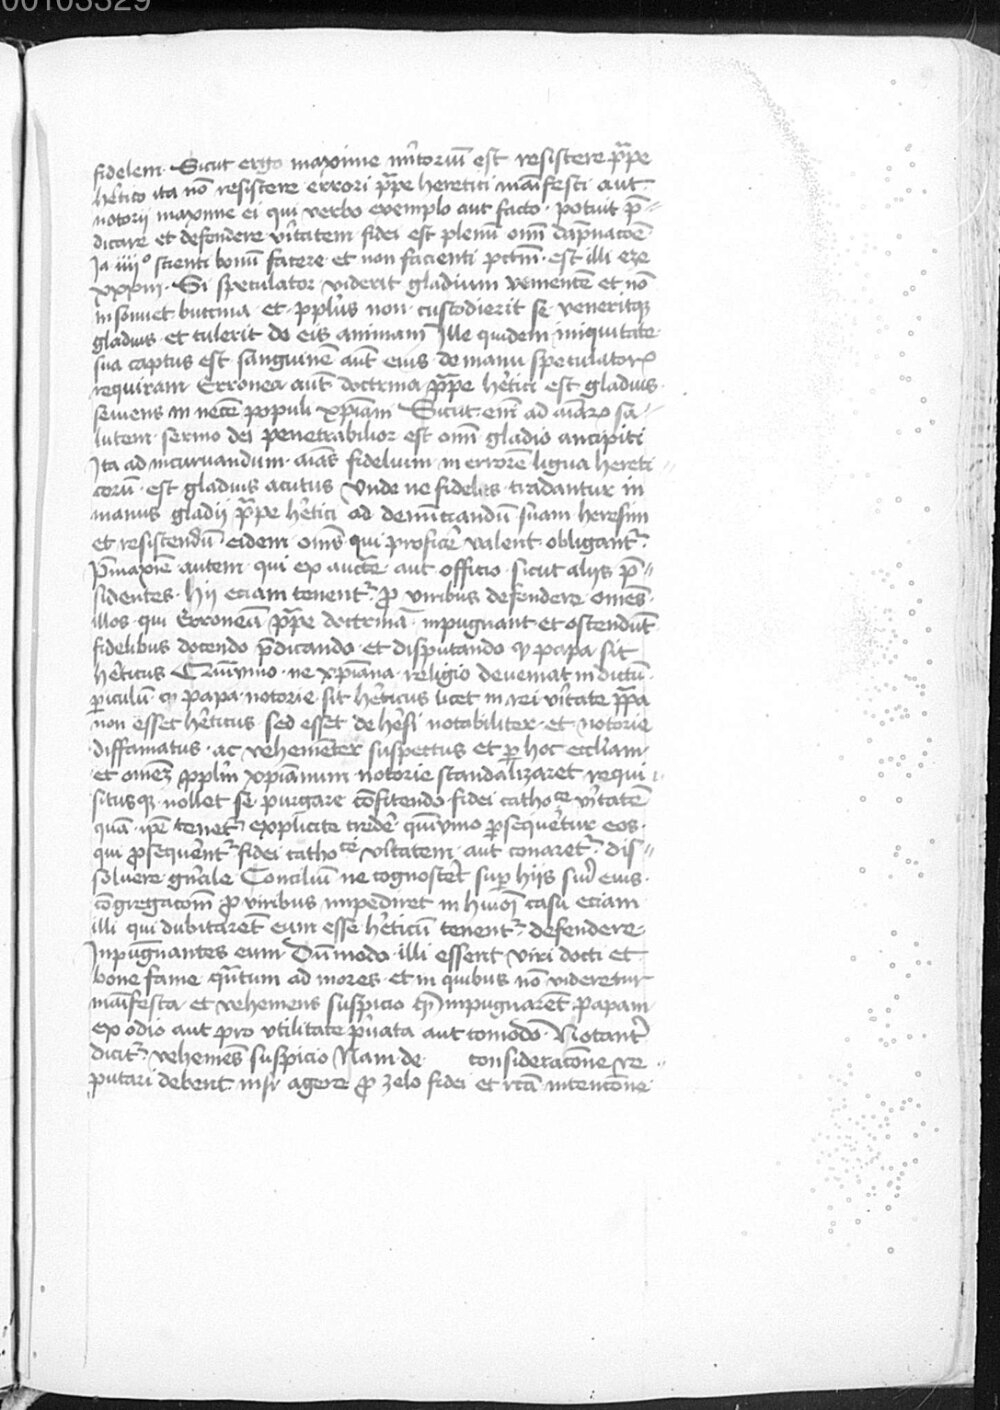 00103329
fidelem · Sicut ergo maxime mĩtoriũ est resistere p̃pe
hẽtico ita nõ resistere errori p̃pe heretici mãifesti aut
notorii maxime ei qui verbo exemplo aut facto · potuit p̃
dicare et defendere v̾itatem fidei est plenũ om̃i dãpnacõe
Ja iiiiº scienti bonũ facere et non facienti pctm̃ · est illi eze
xxxiii · Si speculator viderit gladium venientẽ et nõ
insonuet buccina et ppl̾us non custodierit se veneritqꝫ
gladius et tulerit de eis animam Ille quidem iniquitate
sua captus est sanguinẽ aut̃ eius de manu speculatorꝭ
requiram Erronea aut̃ doctrina p̃pe hẽtici est gladius
seuiens in necẽ populi xp̃iam Sicut em̃ ad aĩarꝝ sa
lutem sermo dei penetrabilior est om̃i gladio ancipiti
Ita ad incuruandum aĩas fidelium in errorẽ ligua hereti
corũ est gladius acutus Unde ne fideles tradantur in
manus gladij p̃pe hẽtici ad denũctiandũ suam heresim
et resistendũ eidem om̃s qui proficẽ valent obligant̾
p̃maxiẽ autem qui ex auctẽ aut officio sicut aliis p̃
sidentes · Hii eciam tenent̾ ꝓ viribus defendere omẽs
illos qui erroneã p̃pe doctrinã inpugnant et ostendũt
fidelibus docendo p̃dicando et disputando ꝙ papa sit
hẽticus Qũymo ne xp̃iana religio deueniat in dictũ
ꝑiculũ ꝙ papa notorie sit hẽticus licet in rei v̾itate p̃pa
non esset hẽticus sed esset de hẽsi notabiliter et notorie
diffamatus ac vehemẽter suspectus et ꝑ hoc eccliam
et omẽꝫ ppl̾m xp̃ianum notorie scandalizaret requi
situsqꝫ nollet se purgare cõfitendo fidei cathoᶜᵉ v̾itatẽ
quã ip̃e tenet̾ explicite credẽ quĩymo ꝑsequẽtur eos
qui ꝓsequẽnt̾ fidei cathoᶜᵉ v̾itatem aut conaret̾ dis
soluere gñale Conciliũ ne cognoscẽt suꝑ hiis siuẽ eius
cõgregacõm ꝓ viribus impediret in hmõi casu eciam
illi qui dubitarẽt eum esse hẽticũ tenent̾ defendere
Inpũgnantes eum Dũmodo illi essent viri docti et
bone fame qũtum ad mores et in quibus nõ videretur
mãifesta et vehemens suspicio ꝙ inpugnarẽt papam
ex odio aut pro vtilitate p̾uata aut comodo · Notant̾
dicit̾ vehemẽs suspicio Nam de consideracõne re
putari debent nisi agere ꝓ zelo fidei et rc̃a intencõne